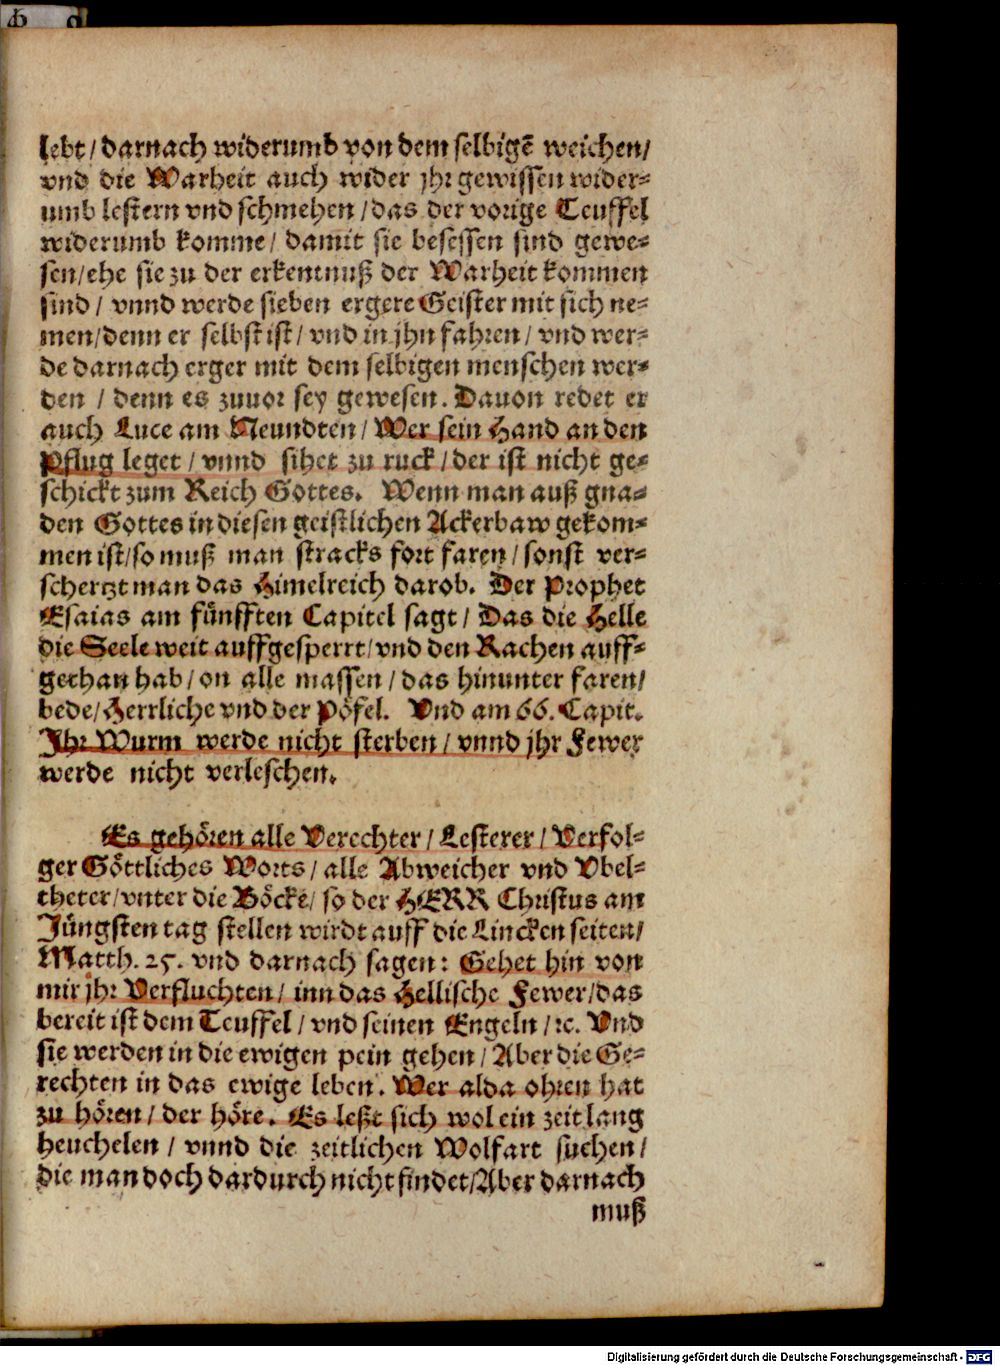 lebt / darnach widerumb von dem selbigẽ weichen /
vnd die Warheit auch wider jhr gewissen wider-
umb lestern vnd schmehen / das der vorige Teuffel
widerumb komme / damit sie besessen sind gewe-
sen / ehe sie zu der erkentnuß der Warheit kommen
sind / vnnd werde sieben ergere Geister mit sich ne-
men / denn er selbst ist / vnd in jhn fahren / vnd wer-
de darnach erger mit dem selbigen menschen wer-
den / denn es zuuor sey gewesen. Dauon redet er
auch Luce am Neundten / Wer sein Hand an den
Pflug leget / vnnd sihet zu ruck / der ist nicht ge-
schickt zum Reich Gottes. Wenn man auß gna-
den Gottes in diesen geistlichen Ackerbaw gekom-
men ist / so muß man stracks fort faren / sonst ver-
schertzt man das Himelreich darob. Der Prophet
Esaias am fünfften Capitel sagt / Das die Helle
die Seele weit auffgesperrt / vnd den Rachen auff-
gethan hab / on alle massen / das hinunter faren /
bede / Herrliche vnd der Pöfel. Vnd am 66. Capit.
Jhr Wurm werde nicht sterben / vnnd jhr Fewer
werde nicht verleschen.
Es gehören alle Verechter / Lesterer / Verfol-
ger Göttliches Worts / alle Abweicher vnd Vbel-
theter / vnter die Böcke / so der HERR Christus am
Jüngsten tag stellen wirdt auff die Lincken seiten /
Matth. 25. vnd darnach sagen: Gehet hin von
mir jhr Verfluchten / inn das Hellische Fewer / das
bereit ist dem Teuffel / vnd seinen Engeln / ꝛc. Vnd
sie werden in die ewigen pein gehen / Aber die Ge-
rechten in das ewige leben. Wer alda ohren hat
zu hören / der höre. Es leßt sich wol ein zeit lang
heuchelen / vnnd die zeitlichen Wolfart suchen /
die man doch dardurch nicht findet / Aber darnach
muß
Digitalisierung gefördert durch die Deutsche Forschungsgemeinschaft - DFG